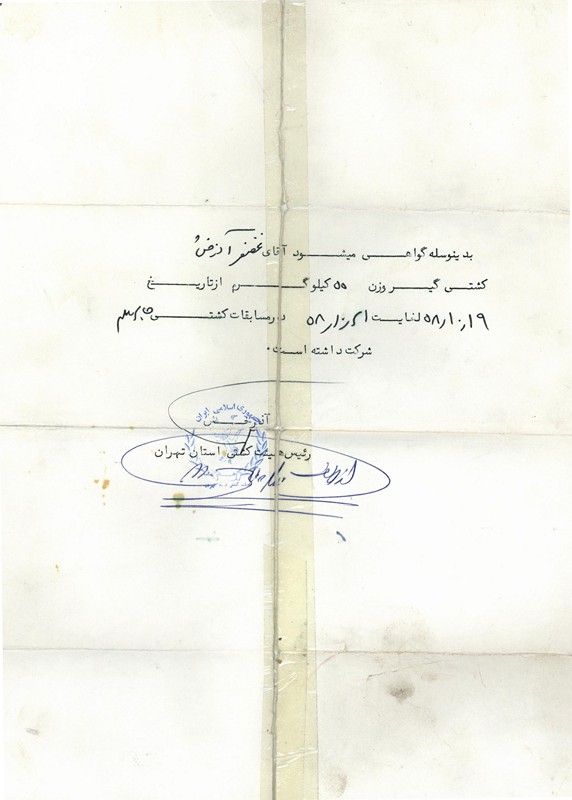 بدینوسله گواهی میشود آقای غضنفر آذرخش
کشتی گیر وزن ۵۵ کیلو گرم از تاریخ
۵۸/۱۰/۱۹ لغایت ۵۸/۱۰/ در مسابقات کشتی
شرکت داشته است.
آذرخش
جمهوری اسلامی ایران
رئیس هیئت کشتی استان تهران